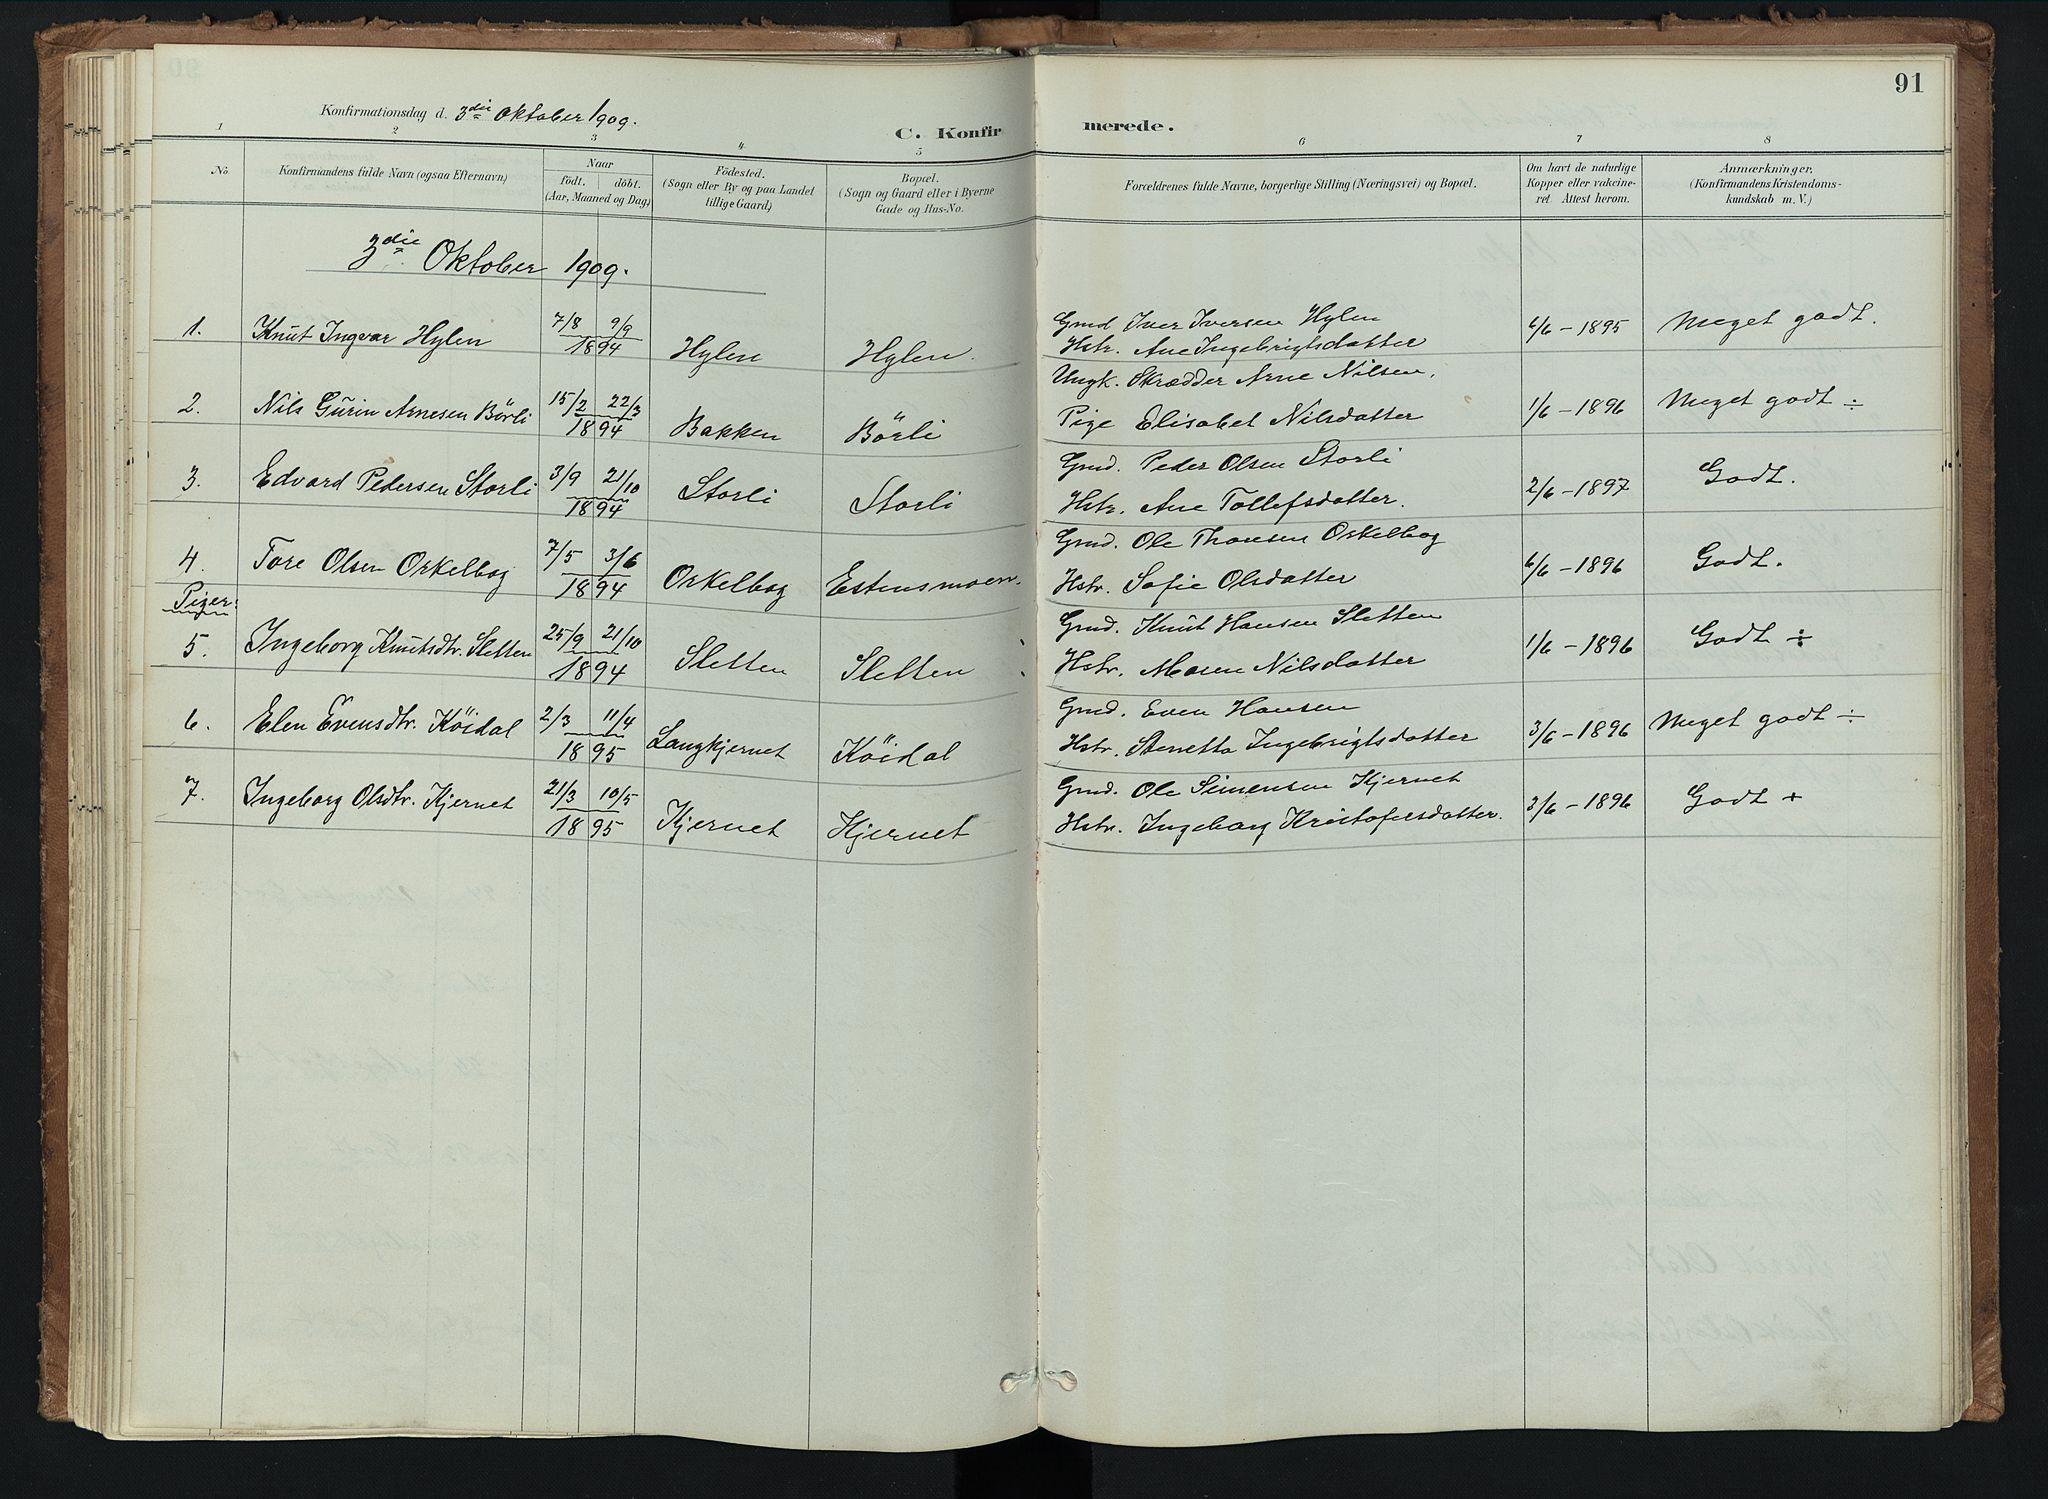 91
Konfirmationsdag d. 3die Oktober 1909.
C. Konfirmerede.
1 2 3 4 5 6 7 8
No.
Konfirmandens fulde Navn (ogsaa Efternavn)
Naar
födt. döbt.
(Aar, Maaned og Dag)
Födested.
(Sogn eller By og paa Landet
tillige Gaard)
Bopæl.
(Sogn og Gaard eller i Byerne
Gade og Hus-No.
Forældrenes fulde Navne, borgerlige Stilling (Næringsvei) og Bopæl.
Om havt de naturlige
Kopper eller vakcine-
ret. Attest herom.
Anmærkninger.
(Konfirmandens Kristendoms-
kundskab m. V.)
3die Oktober 1909.
1. Knut Ingvar Hylen 7/8 9/9 1894 Hylen Hylen.
Gmd Iver Iversen Hylen
Hstr. Ane Ingebrigtsdatter
6/6 - 1895 Meget godt.
2. Nils Gurin Arnesen Börli 15/2 22/3 1894 Bakken Börli
Ungk. Skrædder Arne Nilsen.
Pige Elisabet Nilsdatter
1/6 - 1896 Meget godt ÷
3. Edvard Pedersen Storli 3/9 21/10 1894 Storli Storli
Gmd. Peder Olsen Storli
Hstr. Ane Tollefsdatter.
2/6 - 1897 Godt.
4. Tore Olsen Orkelbog 7/5 3/6 1894 Orkelbog Estensmoen.
Gmd. Ole Thoresen Orkelbog
Hstr. Sofie Olsdatter
6/6 - 1896 Godt.
Piger:
5. Ingeborg Knutsdtr. Sletten 25/9 21/10 1894 Sletten Sletten
Gmd. Knut Hansen Sletten
Hstr. Maren Nilsdatter
1/6 - 1896 Godt ÷
6. Elen Evensdtr. Köidal 2/3 11/4 1895 Langkjernet Köidal
Gmd. Even Hansen
Hstr. Ingebrigtsdatter
3/6 - 1896 Meget godt ÷
7. Ingeborg Olsdtr. Kjernet 21/3 10/5 1895 Kjernet Kjernet
Gmd. Ole Simensen Kjernet
Hstr. Ingeborg Kristofersdatter.
3/6 - 1896 Godt +